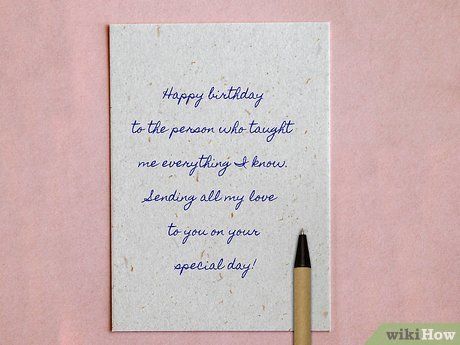 Happy birthday
to the person who taught
me everything I know.
Sending all my love
to you on your
special day!
wikiHow